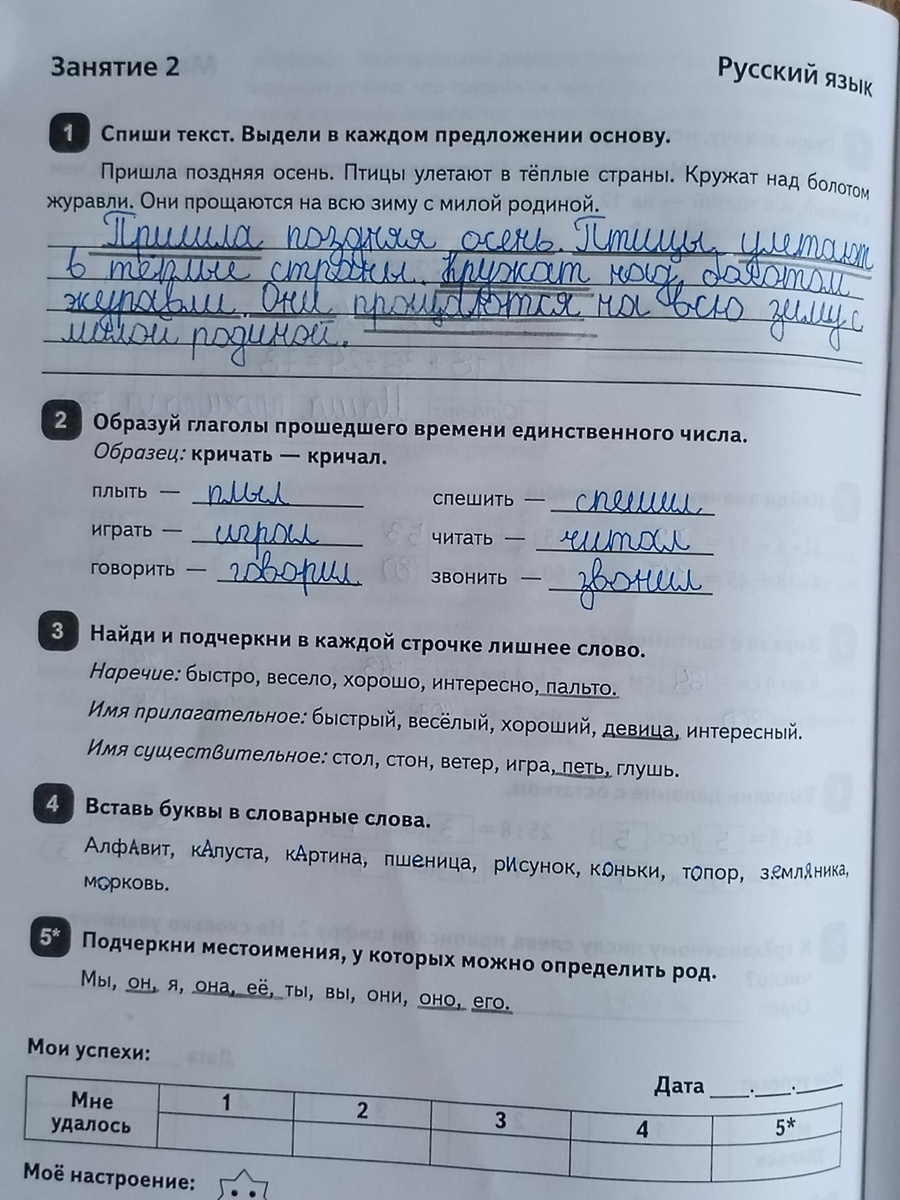 Занятие 2
Русский язык
1 Спиши текст. Выдели в каждом предложении основу.
Пришла поздняя осень. Птицы улетают в тёплые страны. Кружат над болотом
журавли. Они прощаются на всю зиму с милой родиной.
Пришла поздняя осень. Птицы улетают
в тёплые страны. Кружат над болотом
журавли. Они прощаются на всю зиму с
милой родиной.
2 Образуй глаголы прошедшего времени единственного числа.
Образец: кричать — кричал.
плыть — плыл спешить — спешил
играть — играл читать — читал
говорить — говорил звонить — звонил
3 Найди и подчеркни в каждой строчке лишнее слово.
Наречие: быстро, весело, хорошо, интересно, пальто.
Имя прилагательное: быстрый, весёлый, хороший, девица, интересный.
Имя существительное: стол, стон, ветер, игра, петь, глушь.
4 Вставь буквы в словарные слова.
АлфАвит, кАпуста, кАртина, пшеница, рИсунок, коньки, топор, земляника,
морковь.
5* Подчеркни местоимения, у которых можно определить род.
Мы, он, я, она, её, ты, вы, они, оно, его.
Мои успехи:
Дата __.__.__
Мне 1 2 3 4 5*
удалось
Моё настроение: